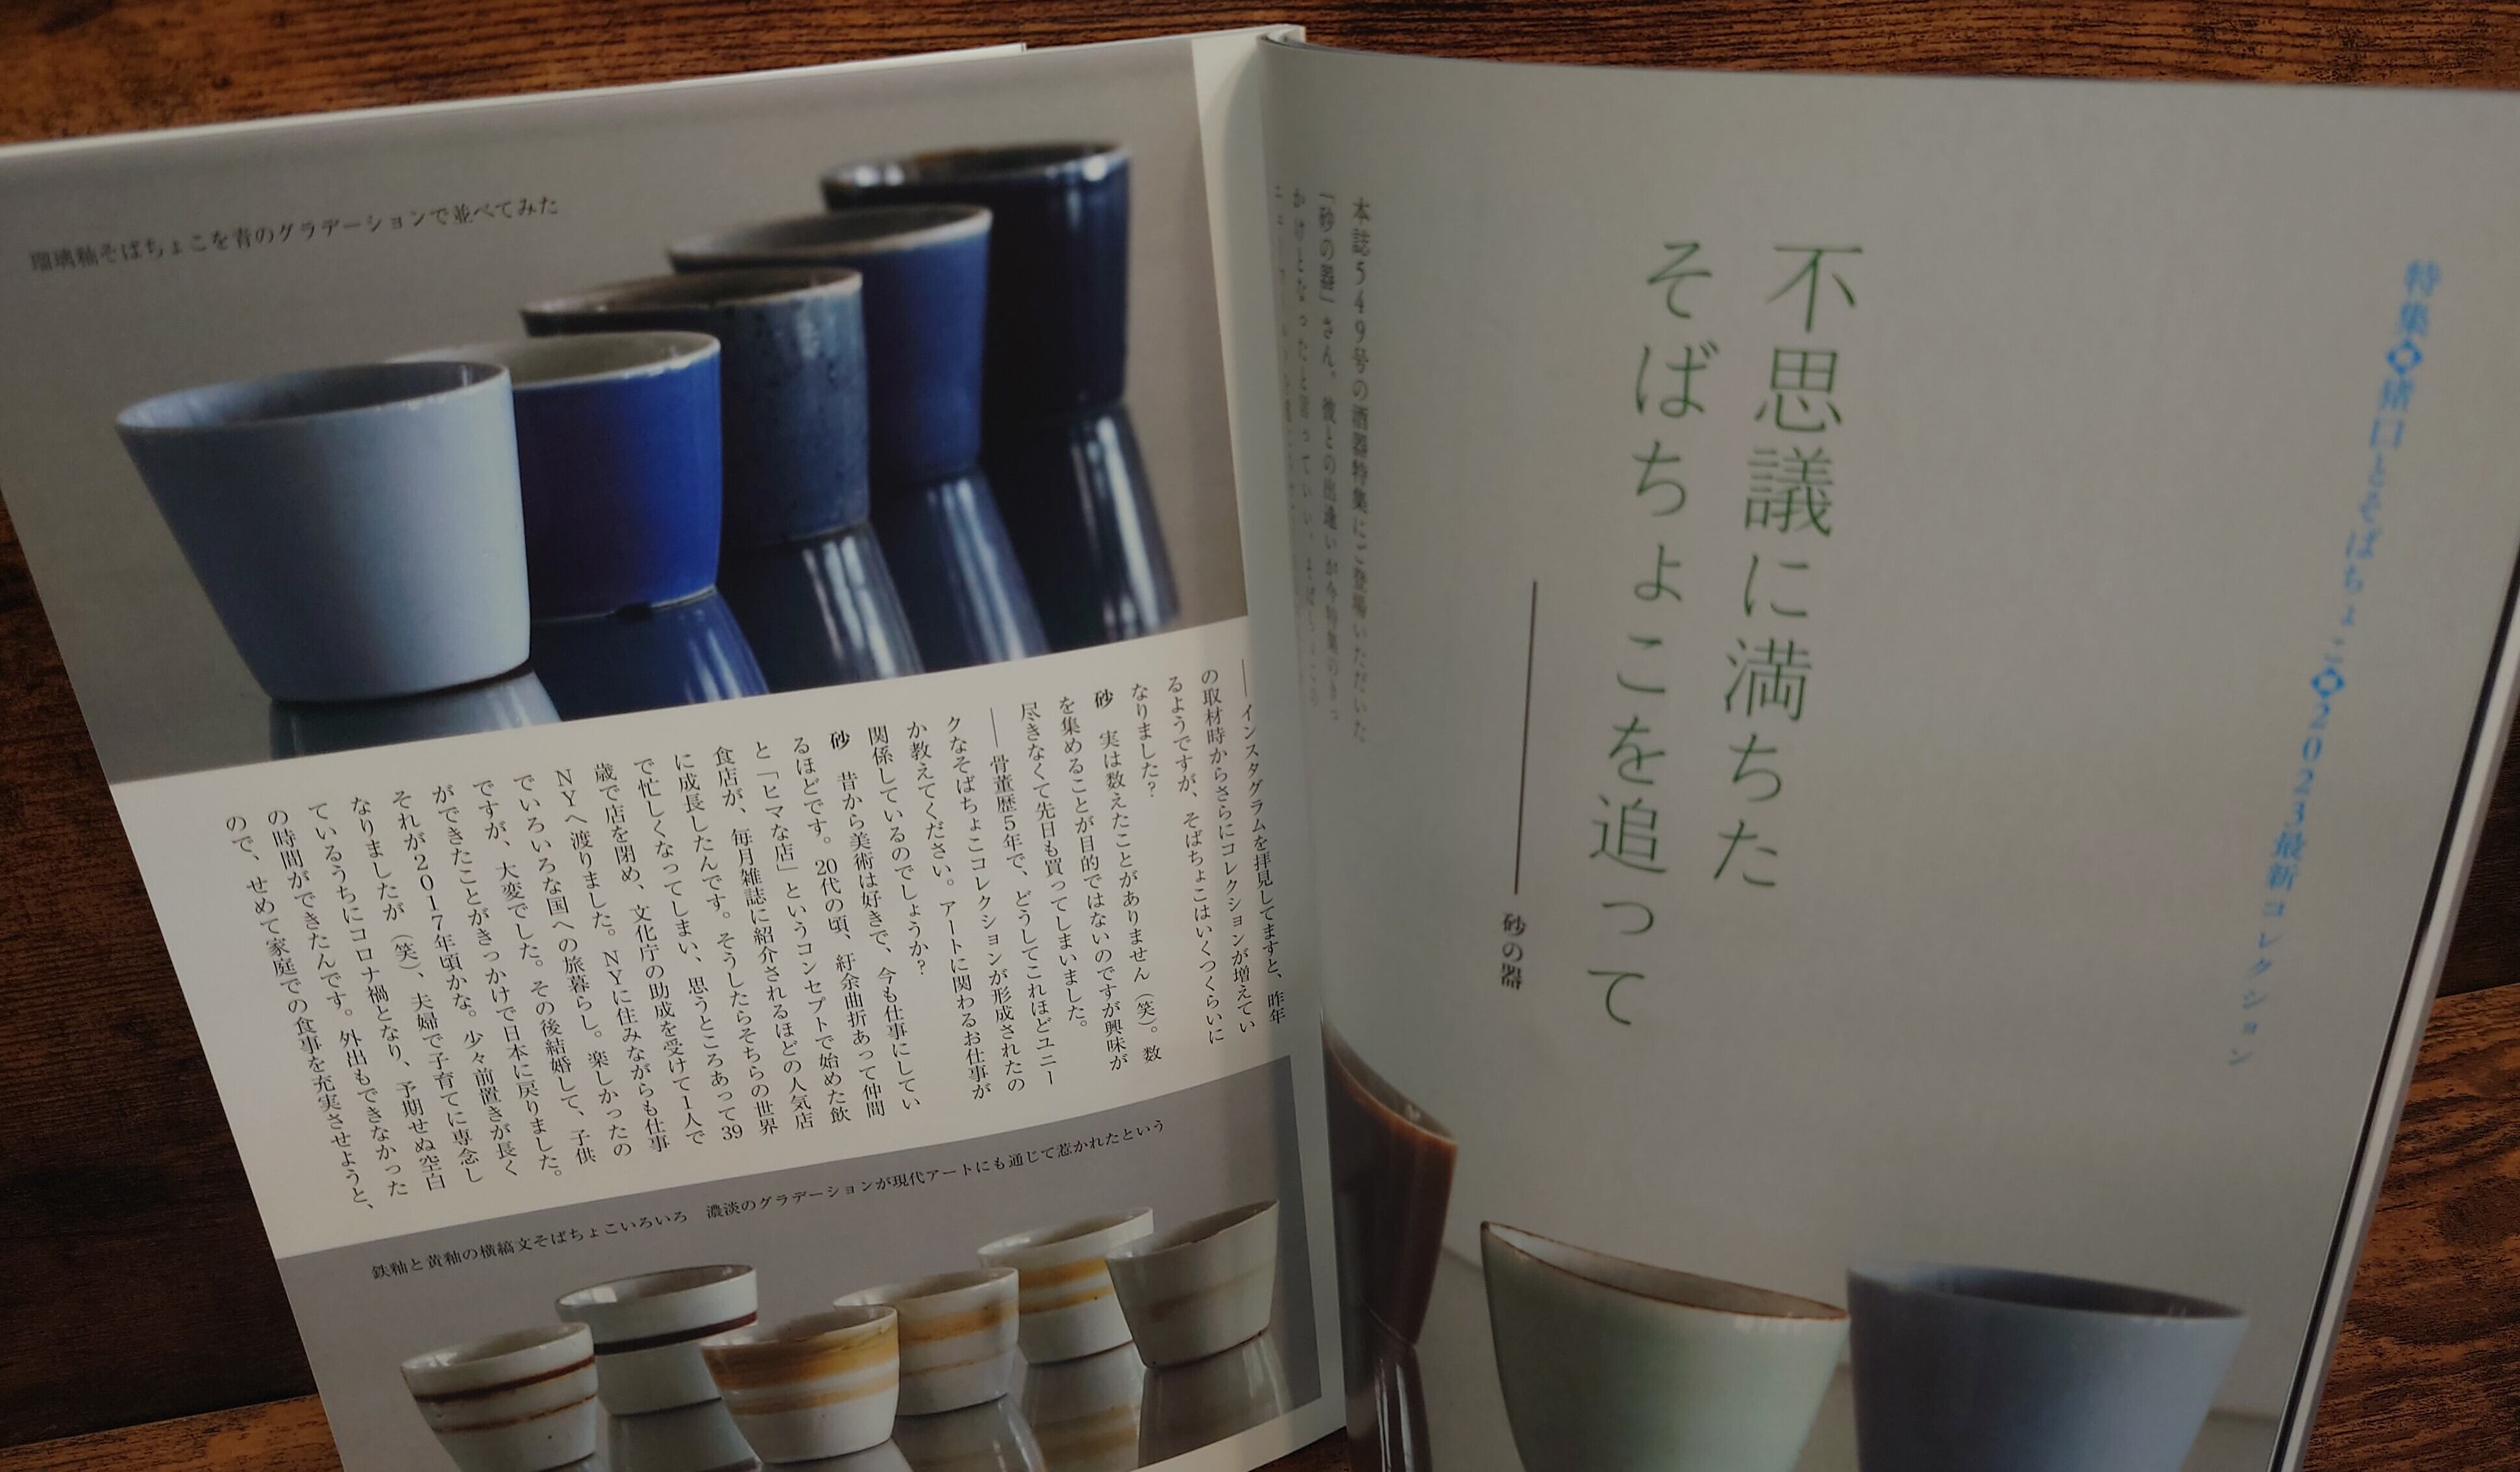 特集◆猪口とそばちょこ◆2023最新コレクション
不思議に満ちた
そばちょこを追って
砂の器
本誌549号の酒器特集にご登場いただいた
「砂の器」さん。彼との出逢いが今特集のきっ
かけとなったと言っていい、
瑠璃釉そばちょこを青のグラデーションで並べてみた
── インスタグラムを拝見してますと、昨年
の取材時からさらにコレクションが増えてい
るようですが、そばちょこはいくつくらいに
なりました？
砂　実は数えたことがありません（笑）。数
を集めることが目的ではないのですが興味が
尽きなくて先日も買ってしまいました。
── 骨董歴5年で、どうしてこれほどユニー
クなそばちょこコレクションが形成されたの
か教えてください。アートに関わるお仕事が
関係しているのでしょうか？
砂　昔から美術は好きで、今も仕事にしてい
るほどです。20代の頃、紆余曲折あって仲間
と「ヒマな店」というコンセプトで始めた飲
食店が、毎月雑誌に紹介されるほどの人気店
に成長したんです。そうしたらそちらの世界
で忙しくなってしまい、思うところあって39
歳で店を閉め、文化庁の助成を受けて1人で
NYへ渡りました。NYに住みながらも仕事
でいろいろな国への旅暮らし。楽しかったの
ですが、大変でした。その後結婚して、子供
ができたことがきっかけで日本に戻りました。
それが2017年頃かな。少々前置きが長く
なりましたが（笑）、夫婦で子育てに専念し
ているうちにコロナ禍となり、予期せぬ空白
の時間ができたんです。外出もできなかった
ので、せめて家庭での食事を充実させようと、
鉄釉と黄釉の横縞文そばちょこいろいろ　濃淡のグラデーションが現代アートにも通じて惹かれたという